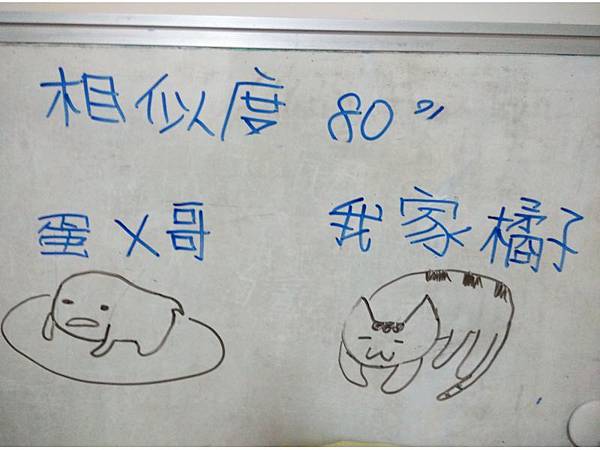 相似度 80%
蛋ㄨ哥 我家橘子